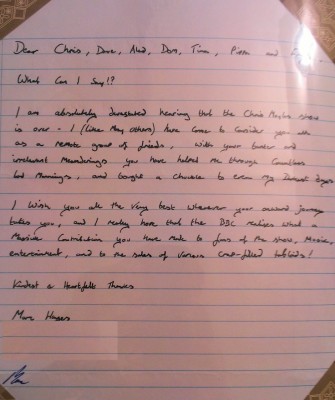 Dear Chris, Dave, Aled, Dom, Tina, Pippa and
What Can I Say!?
I am absolutely devastated hearing that the Chris Moyles show
is over - I (like many others) have come to consider you all
as a remote group of friends, with your banter and
irrelevant Meanderings you have helped me through Countless
bad Mornings, and bought a chuckle to even my Darkest days
I Wish you all the very best wherever your onward journey
takes you, and I really hope that the BBC realises what a
Massive Contribution you have made to fans of the show, Music,
entertainment, and to the sales of various crap-filled tabloids!
Kindest & Heartfelt Thanks
Marc